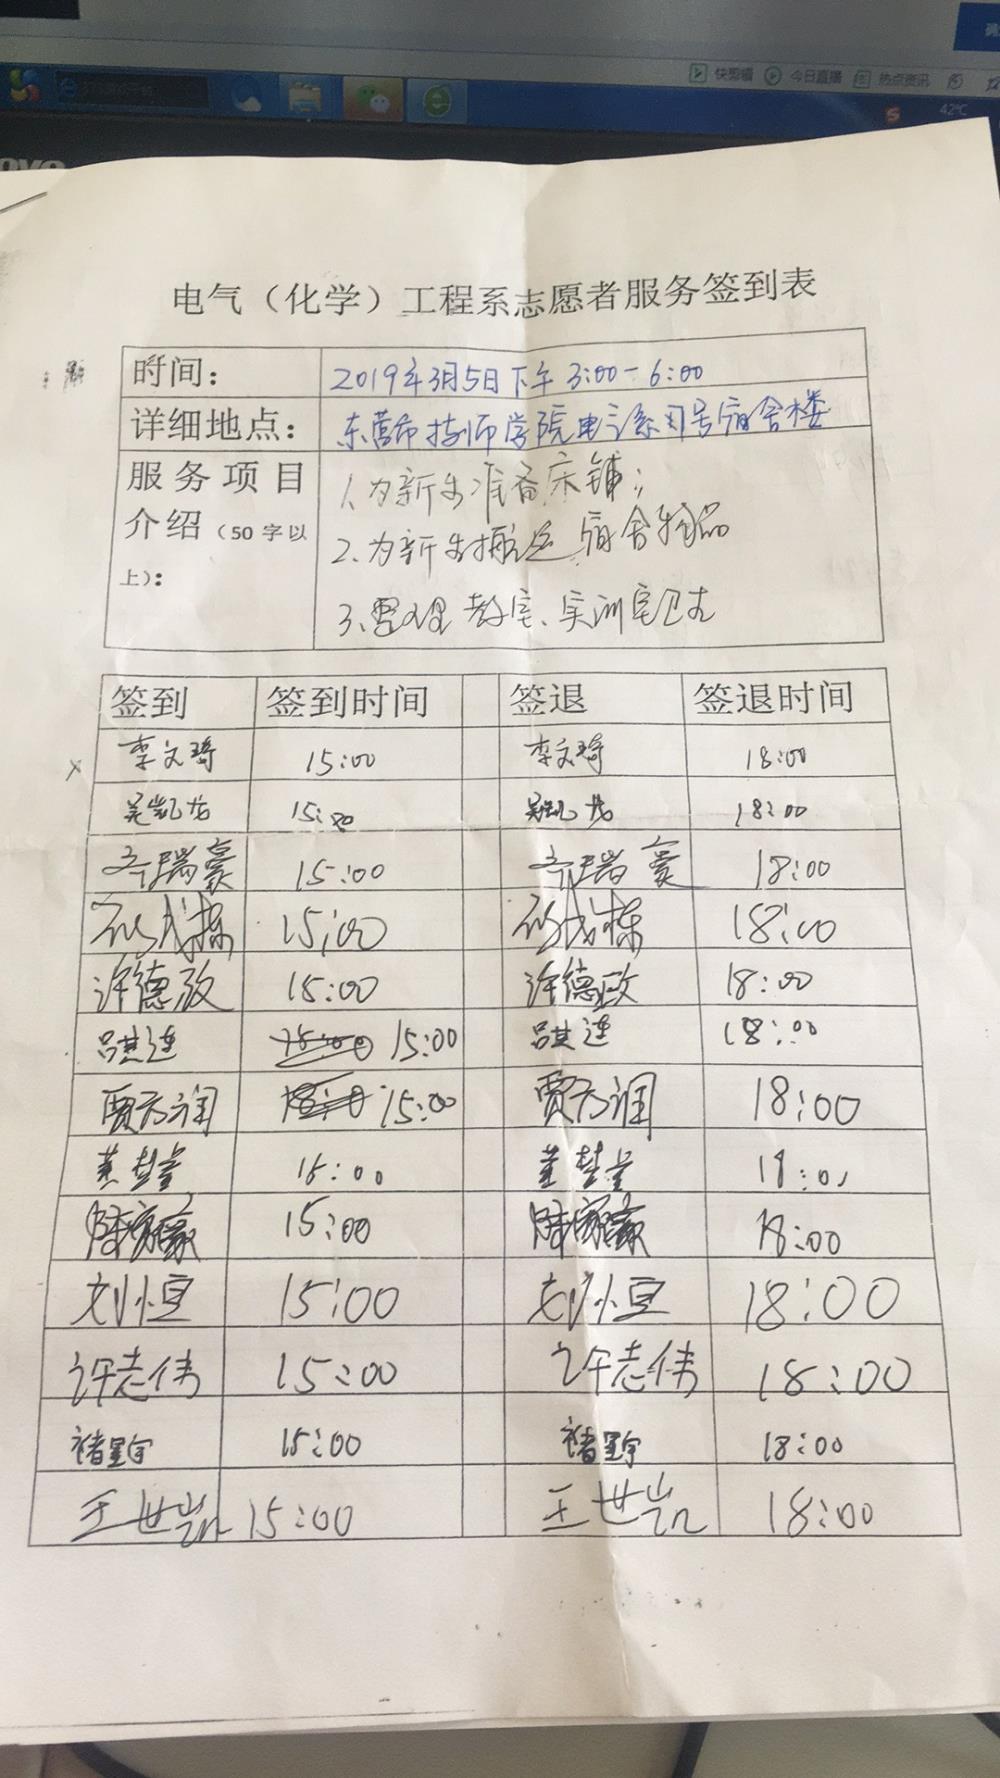 快剪辑 今日直播 热点资讯
42℃
电气（化学）工程系志愿者服务签到表
时间： 2019年3月5日下午 3:00-6:00
详细地点： 东营市技师学院电气系 号宿舍楼
服务项目介绍（50字以上）：
1.为新生准备床铺；
2.为新生搬运宿舍物品
3.整理教室、实训室卫生
签到 签到时间 签退 签退时间
李文琦 15:00 李文琦 18:00
吴凯龙 15:00 吴凯龙 18:00
齐瑞豪 15:00 齐瑞豪 18:00
成栋 15:00 成栋 18:00
许德政 15:00 许德政 18:00
吕其连 15:00 吕其连 18:00
贾方润 15:00 贾方润 18:00
董慧 15:00 董慧 18:00
陈家豪 15:00 陈家豪 18:00
刘恒 15:00 刘恒 18:00
许志伟 15:00 许志伟 18:00
褚星宇 15:00 褚星宇 18:00
王世凯 15:00 王世凯 18:00